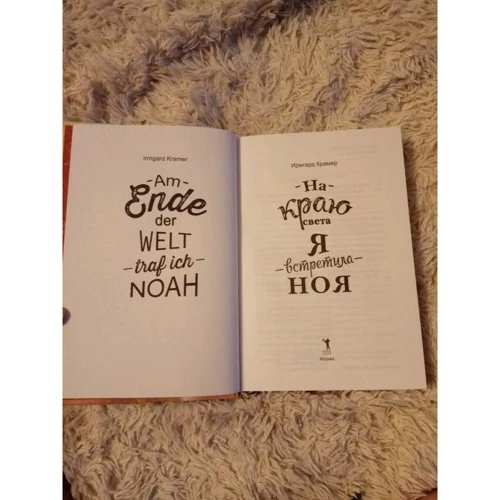 Irmgard Kramer
Am
Ende
der
WELT
traf ich
NOAH
Ирмгард Крамер
На
краю
света
Я
встретила
НОЯ
Москва